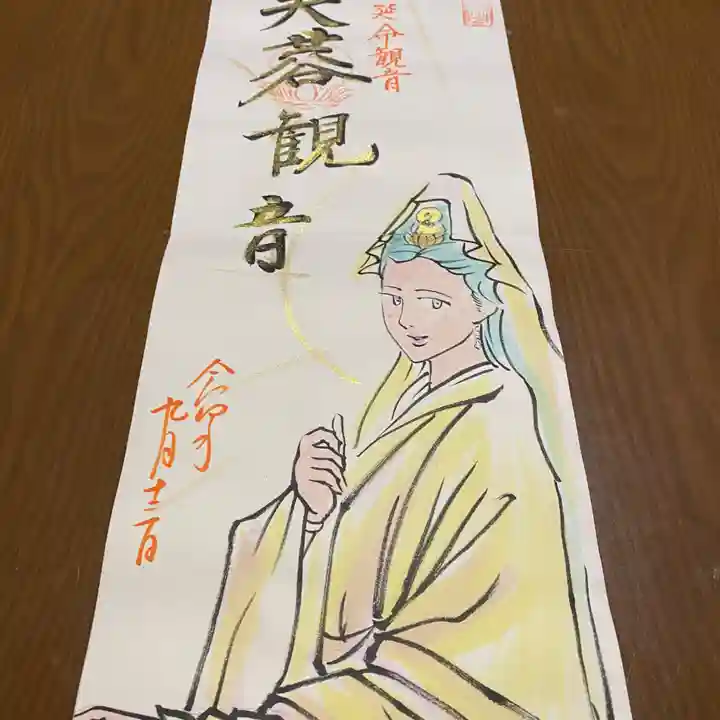 延命観音
芙蓉観音
令和
九月十二日